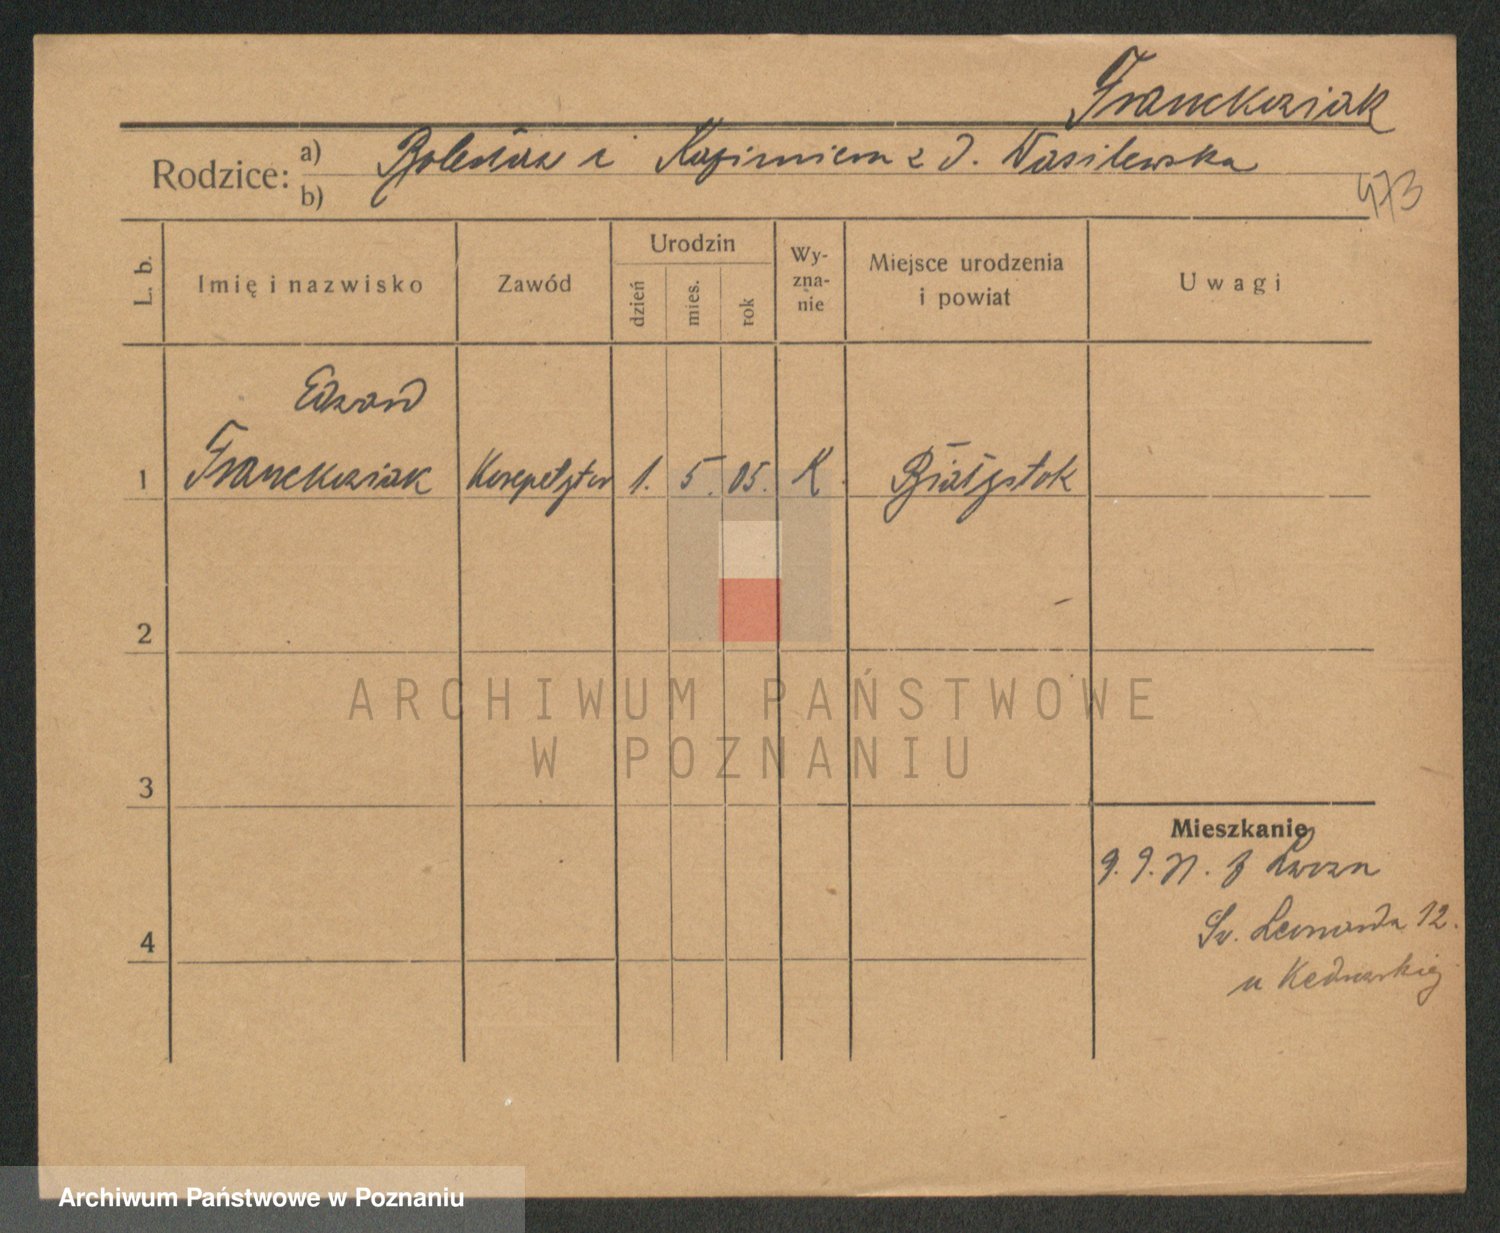 Franckowiak
Rodzice: a) Bolesław i Kazimiera z d. Wasilewska
b)
473
L. b.
Imię i nazwisko
Zawód
Urodzin
dzień
mies.
rok
Wy-
zna-
nie
Miejsce urodzenia
i powiat
Uwagi
Edward
1 Franckowiak Korepetytor 1. 5. 05. K. Białystok
2
3
4
Mieszkanie
9. 9. 21. z
Św. Leonarda 12.
u
ARCHIWUM PAŃSTWOWE
W POZNANIU
Archiwum Państwowe w Poznaniu